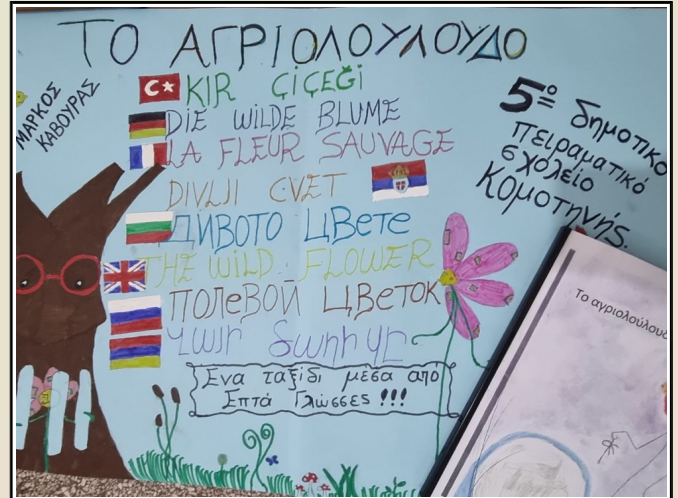 ΤΟ ΑΓΡΙΟΛΟΥΛΟΥΔΟ
ΜΑΡΚΟΣ
ΚΑΒΟΥΡΑΣ
KIR ÇİÇEĞİ
DIE WILDE BLUME
LA FLEUR SAUVAGE
DIVLJI CVET
ДИВОТО ЦВЕТЕ
THE WILD FLOWER
ПОЛЕВОЙ ЦВЕТОК
Վայրի
Ένα ταξίδι μέσα από
Επτά Γλώσσες !!!
5ο δημοτικό
πειραματικό
σχολείο
Κομοτηνής.
Το αγριολούλουδ